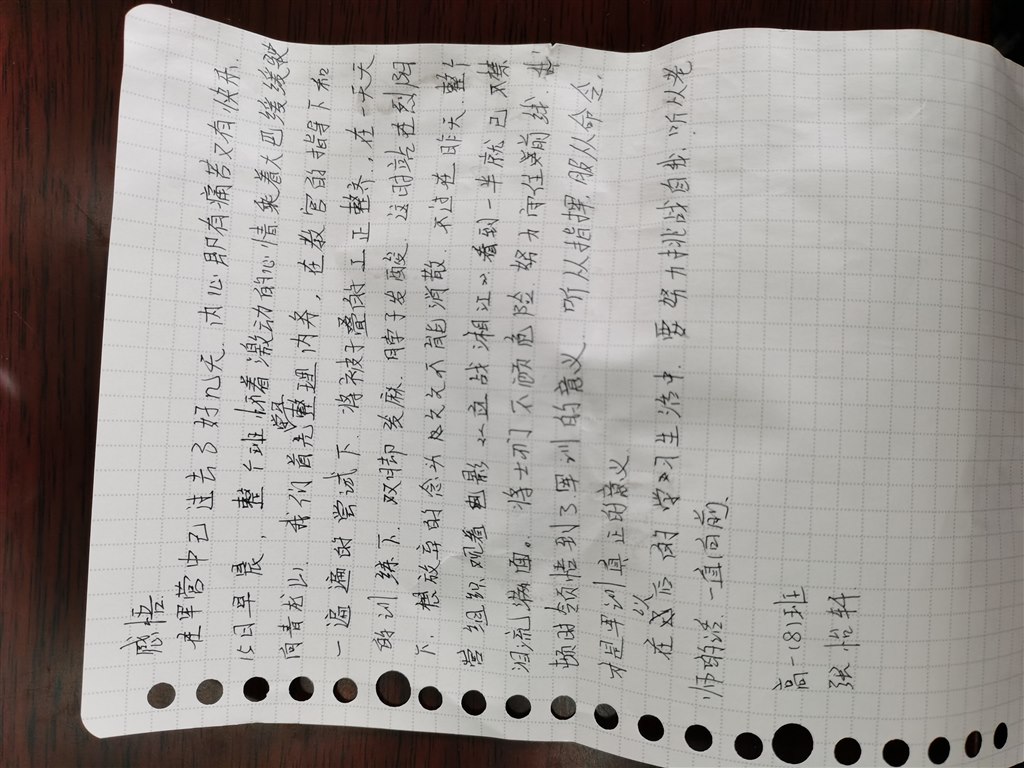 感悟
在军营中已过去了好几天。内心即有痛苦又有快乐
15日早晨，整个班怀着激动的心情乘着大巴缓缓驶
向青龙山。我们首先学习整理内务，在教官的指导下和
一遍遍的尝试下，将被子叠的工工正整齐，在一天天
的训练下。双脚发麻。脖子发酸。这时站在烈阳
下，想放弃的念头久久不能消散。不过在昨天，整个
营组织观看电影《血战湘江》看到一半就已不禁
泪流满面。将士们不顾危险努力守住前线，我
顿时领悟到了军训的意义。听从指挥，服从命令，
才是军训真正的意义
在以后的学习生活中，要努力挑战自我，听从老
师的话，一直向前。
高一(8)班
张怡轩